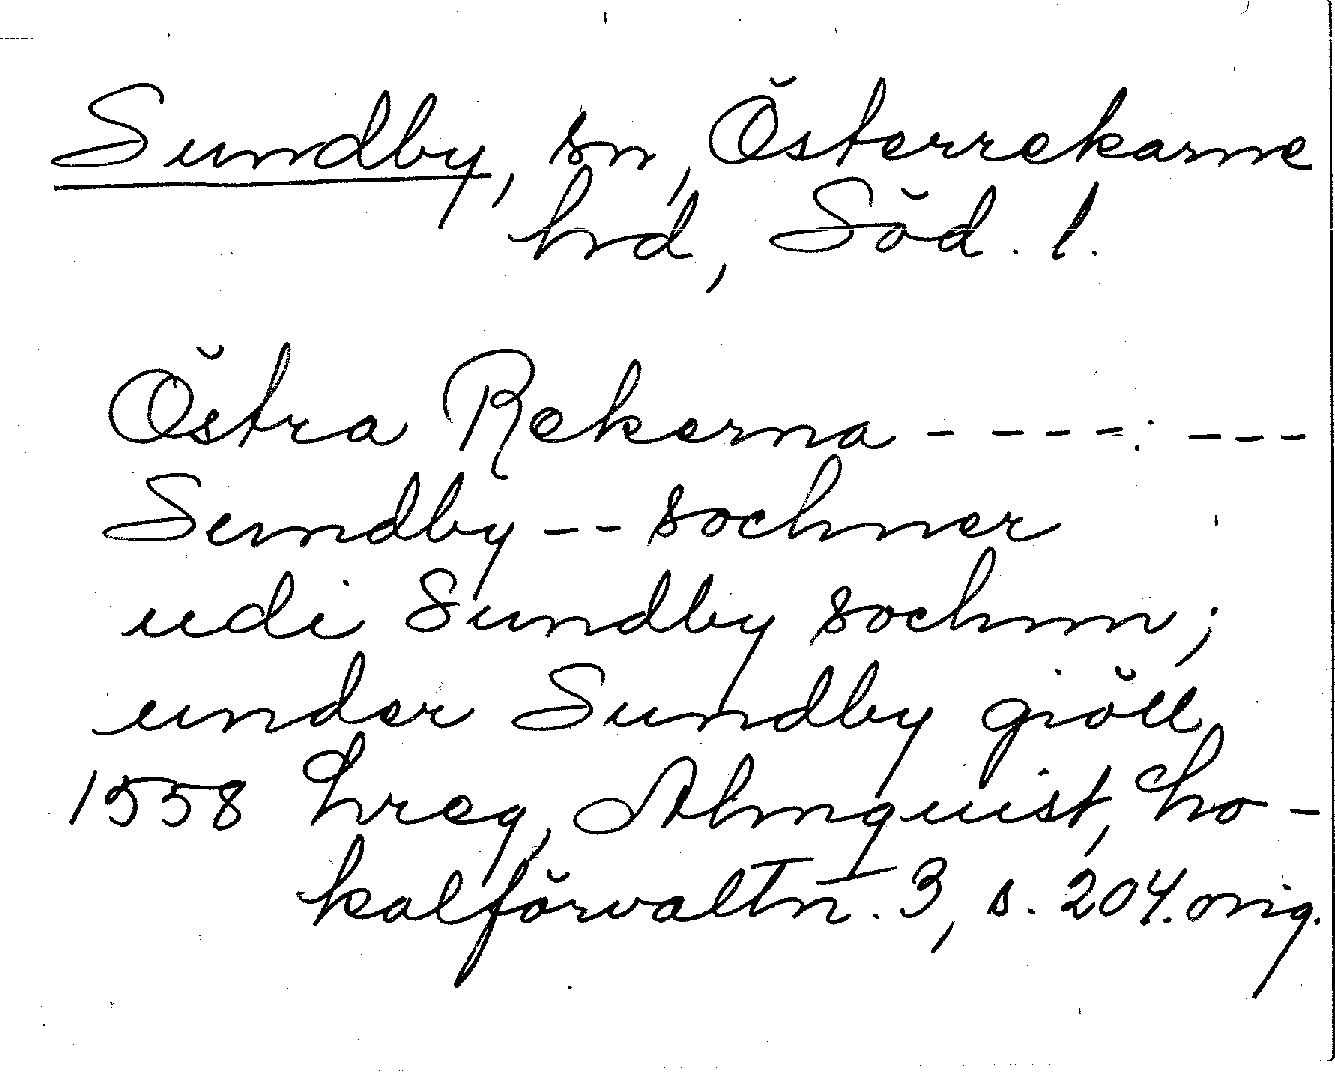 Sundby, sn, Österrekarne
hrd, Söd. l.
Östra Rekerna - - - - : - - -
Sundby -- sochner
udi Sundby sochnn;
under Sundby giöll
1558 hreg, Almquist, Lo-
kalförvaltn. 3, s. 204. orig.